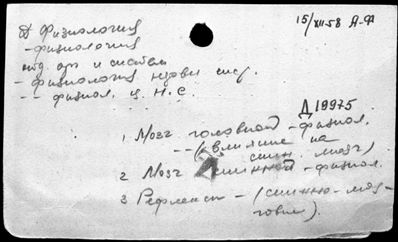 15/XII-58 А-Ф
Д Физиология
- физиология
отд. орг и систем
- физиология нервн сист.
- - физиол. ц. н. с.
Д 19975
1 Мозг головной - физиол.
-- (влияние на
спин. мозг)
2 Мозг спинной - физиол.
3 Рефлексы - (спинно-моз-
говые).